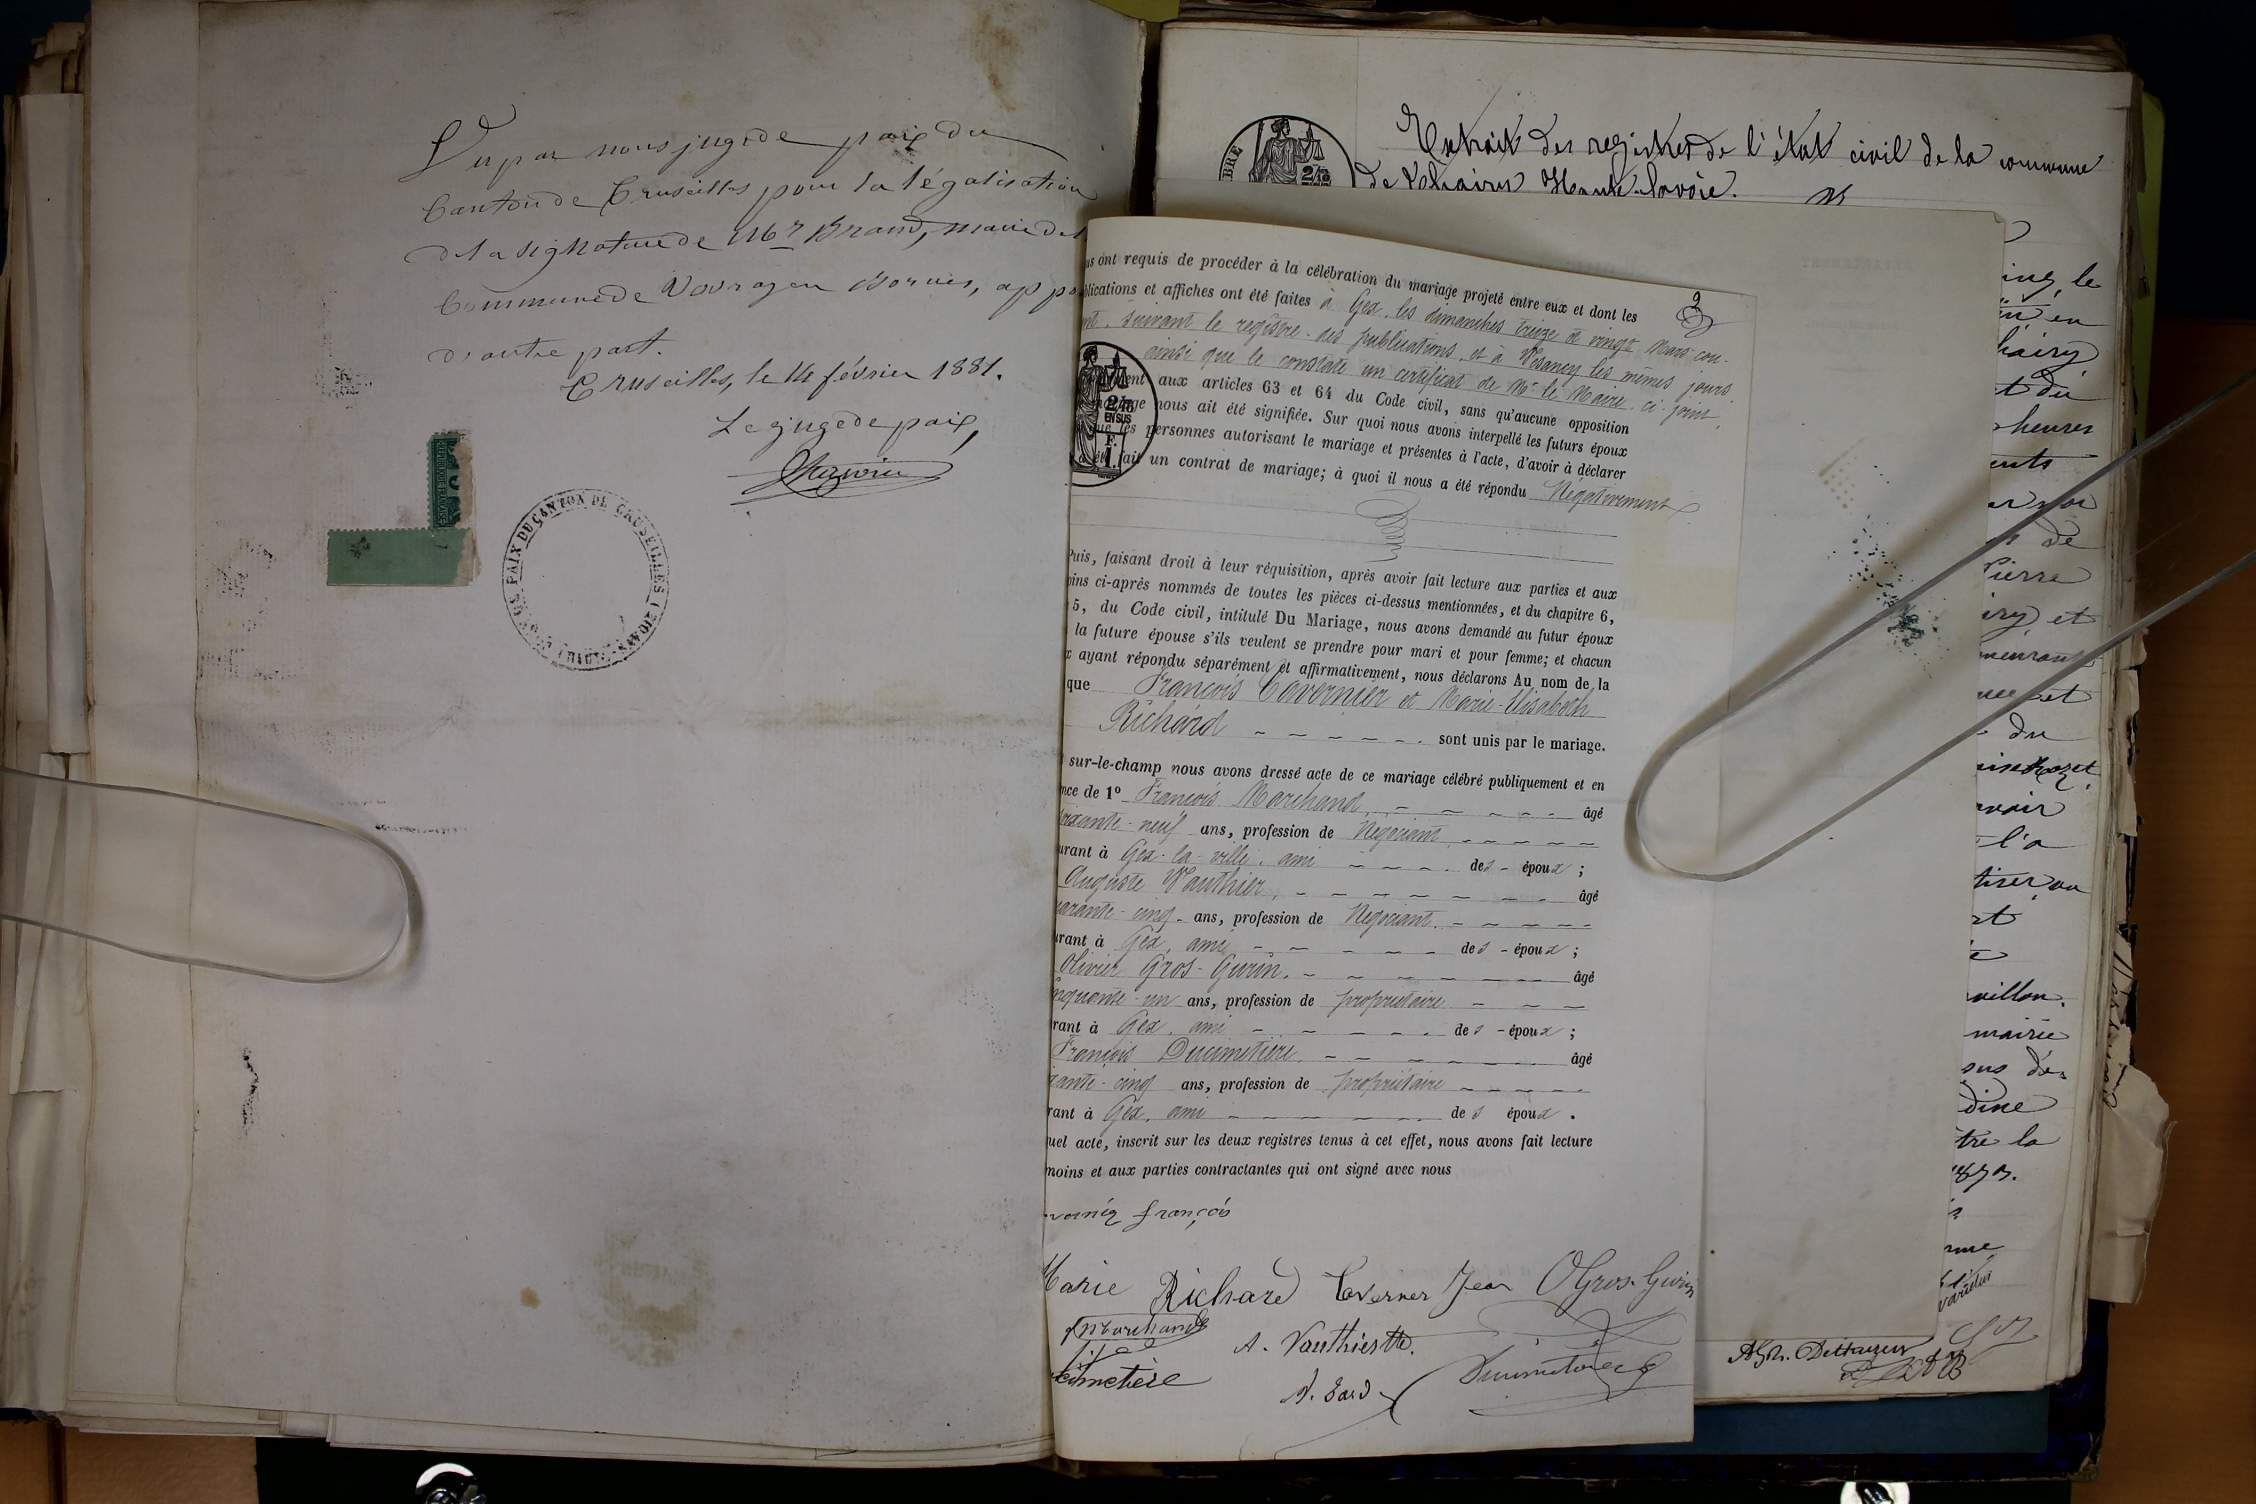 Vu par nous juge de paix du
Canton de Cruseilles pour la légalisation
de la signature de Mr Brand, maire de l
Commune de Vovray en Bornes, appo
d'autre part.
Cruseilles, le 14 février 1881.
Le juge de paix,
PAIX DU CANTON DE CRUSEILLES (HAUTE-SAVOIE)
RÉPUBLIQUE FRANÇAISE
Extrait des registres de l'état civil de la commune
de Haute-Savoie.
2
us ont requis de procéder à la célébration du mariage projeté entre eux et dont les
blications et affiches ont été faites à Gex, les dimanches treize et vingt Mars cou-
ant, suivant le registre des publications, et à Vesancy les mêmes jours
ainsi que le constate un certificat de Mr le Maire ci-joint,
ment aux articles 63 et 64 du Code civil, sans qu'aucune opposition
mariage nous ait été signifiée. Sur quoi nous avons interpellé les futurs époux
que les personnes autorisant le mariage et présentes à l'acte, d'avoir à déclarer
a été fait un contrat de mariage; à quoi il nous a été répondu Négativement
2/10
EN SUS
F.
1.
Puis, faisant droit à leur réquisition, après avoir fait lecture aux parties et aux
oins ci-après nommés de toutes les pièces ci-dessus mentionnées, et du chapitre 6,
5, du Code civil, intitulé Du Mariage, nous avons demandé au futur époux
la future épouse s'ils veulent se prendre pour mari et pour femme; et chacun
x ayant répondu séparément et affirmativement, nous déclarons Au nom de la
que François Tavernier et Marie-Elisabeth
Richard - - - - - - sont unis par le mariage.
sur-le-champ nous avons dressé acte de ce mariage célébré publiquement et en
nce de 1o François Marchand, - - - - - âgé
oixante-neuf ans, profession de Négociant - - - - -
urant à Gex-la-ville, ami - - - - des - époux ;
Auguste Vauthier, - - - - - - - âgé
uarante-cinq - ans, profession de Négociant. - - - - -
urant à Gex, ami - - - - - - des - époux ;
Olivier Gros-Gurin. - - - - - - - âgé
nquante-un ans, profession de propriétaire - - -
rant à Gex, ami - - - - - - des - époux ;
François Ducimetière. - - - - - - âgé
xante-cinq ans, profession de propriétaire - - - - -
rant à Gex, ami - - - - - - des époux .
uel acte, inscrit sur les deux registres tenus à cet effet, nous avons fait lecture
moins et aux parties contractantes qui ont signé avec nous
françois
Marie Richard Taverner Jean O Gros-Gurin
Marchand
A. Vauthier
cimetière
ing, le
en
t du
heures
ents
de
Pierre
iry, et
meurant
et
du
avoir
l'a
avillon.
mairie
sus de
dine
tre la